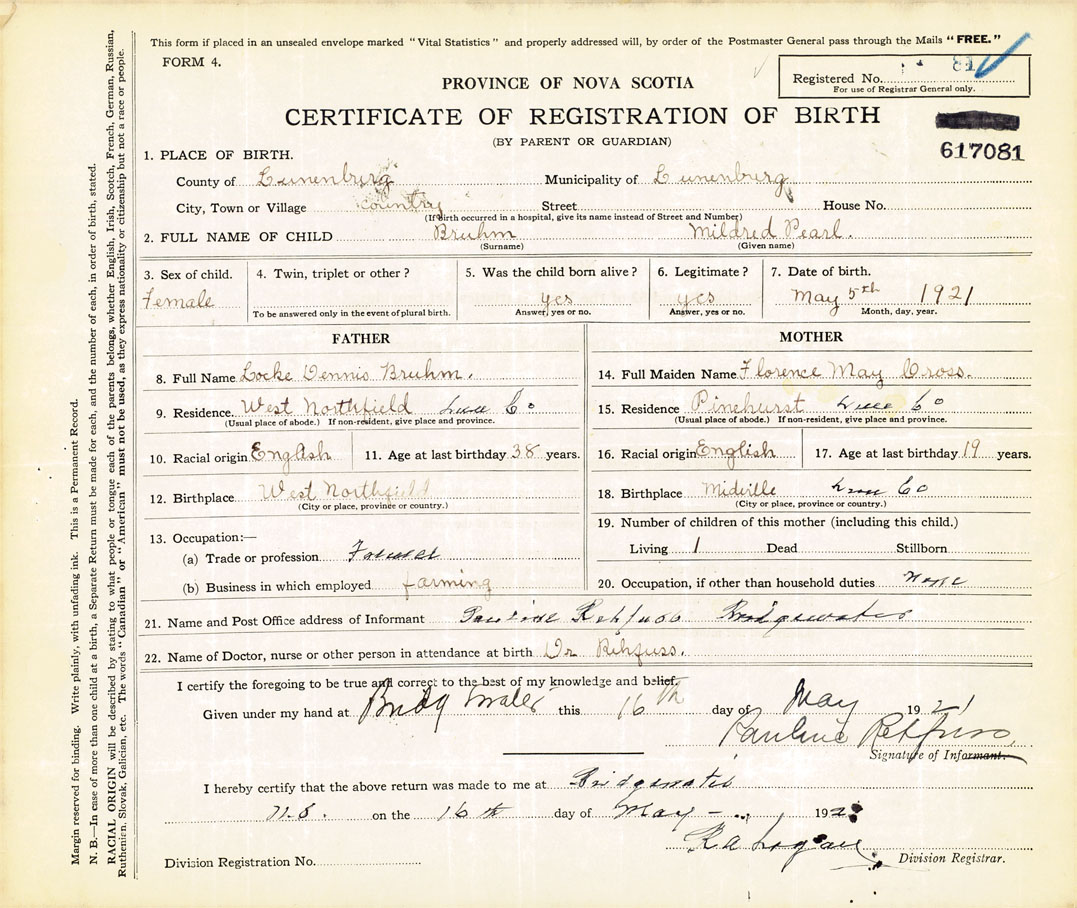 This form if placed in an unsealed envelope marked "Vital Statistics" and properly addressed will, by order of the Postmaster General pass through the Mails "FREE."
FORM 4.
Registered No. 81
For use of Registrar General only.
PROVINCE OF NOVA SCOTIA
CERTIFICATE OF REGISTRATION OF BIRTH
(BY PARENT OR GUARDIAN)
617081
1. PLACE OF BIRTH.
County of Lunenburg Municipality of Lunenburg
City, Town or Village country Street House No.
(If birth occurred in a hospital, give its name instead of Street and Number)
2. FULL NAME OF CHILD Bruhm Mildred Pearl.
(Surname) (Given name)
3. Sex of child. 4. Twin, triplet or other? 5. Was the child born alive? 6. Legitimate? 7. Date of birth.
Female yes yes May 5th 1921
To be answered only in the event of plural birth. Answer, yes or no. Answer, yes or no. Month, day, year.
FATHER
8. Full Name Locke Dennis Bruhm.
9. Residence. West Northfield Lun Co
(Usual place of abode.) If non-resident, give place and province.
10. Racial origin English 11. Age at last birthday 38 years.
12. Birthplace West Northfield
(City or place, province or country.)
13. Occupation:—
(a) Trade or profession Farmer
(b) Business in which employed farming
MOTHER
14. Full Maiden Name Florence May Cross.
15. Residence Pinehurst Lun Co
(Usual place of abode.) If non-resident, give place and province.
16. Racial origin English 17. Age at last birthday 19 years.
18. Birthplace Midville Lun Co
(City or place, province or country.)
19. Number of children of this mother (including this child.)
Living 1 Dead Stillborn
20. Occupation, if other than household duties none
21. Name and Post Office address of Informant Pauline Rehfuss Bridgewater
22. Name of Doctor, nurse or other person in attendance at birth Dr Rehfuss.
I certify the foregoing to be true and correct to the best of my knowledge and belief.
Given under my hand at Bridgwater this 16th day of May 1921
Pauline Rehfuss.
Signature of Informant.
I hereby certify that the above return was made to me at Bridgewater
N.S. on the 16th day of May 192
R A Logan
Division Registrar.
Division Registration No.
Margin reserved for binding. Write plainly, with unfading ink. This is a Permanent Record.
N. B.—In case of more than one child at a birth, a Separate Return must be made for each, and the number of each, in order of birth, stated.
RACIAL ORIGIN will be described by stating to what people or tongue each of the parents belongs, whether English, Irish, Scotch, French, German, Russian,
Ruthenien, Slovak, Galician, etc. The words "Canadian" or "American" must not be used, as they express nationality or citizenship but not a race or people.